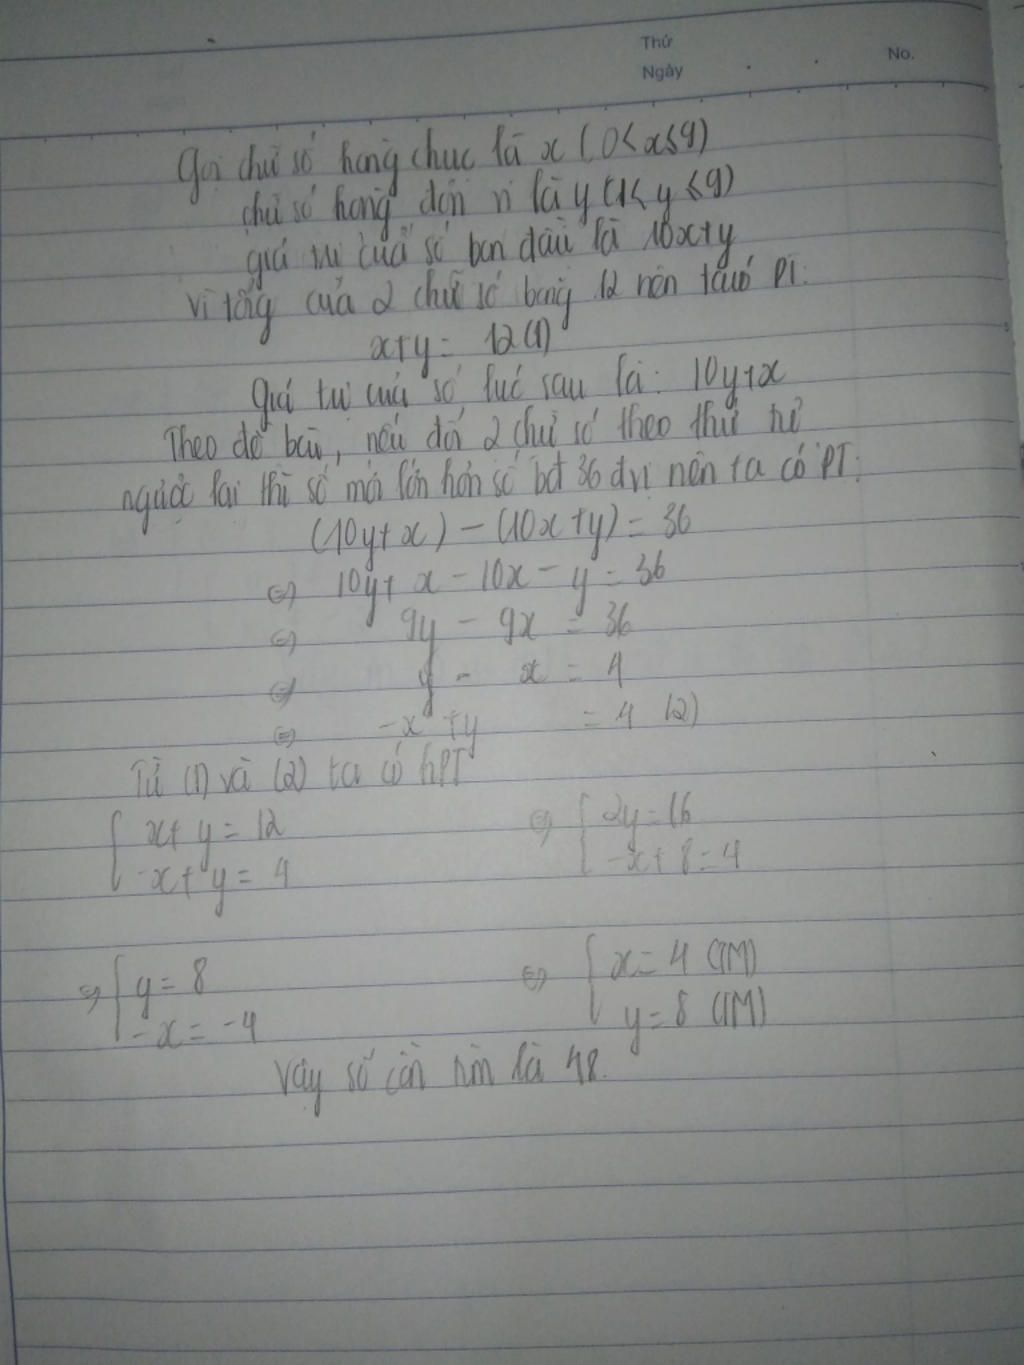 Thứ
Ngày
No.
Gọi chữ số hàng chục là x (0<x≤9)
chữ số hàng đơn vị là y (1≤y≤9)
giá trị của số ban đầu là 10x+y
Vì tổng của 2 chữ số bằng 12 nên ta có PT:
x+y = 12 (1)
Giá trị của số lúc sau là: 10y+x
Theo đề bài, nếu đổi 2 chữ số theo thứ tự
ngược lại thì số mới lớn hơn số bđ 36 đvị nên ta có PT:
(10y+x) - (10x+y) = 36
⇔ 10y+x-10x-y = 36
⇔ 9y - 9x = 36
⇔ y - x = 4
⇔ -x+y = 4 (2)
Từ (1) và (2) ta có hPT
{ x+y=12 ⇔ { 2y=16
-x+y=4 -x+8=4
⇔ { y=8 ⇔ { x=4 (TM)
-x=-4 y=8 (TM)
Vậy số cần tìm là 48.